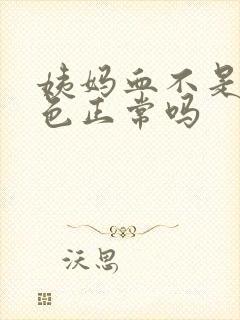 姨妈血不是
色正常吗
沃思